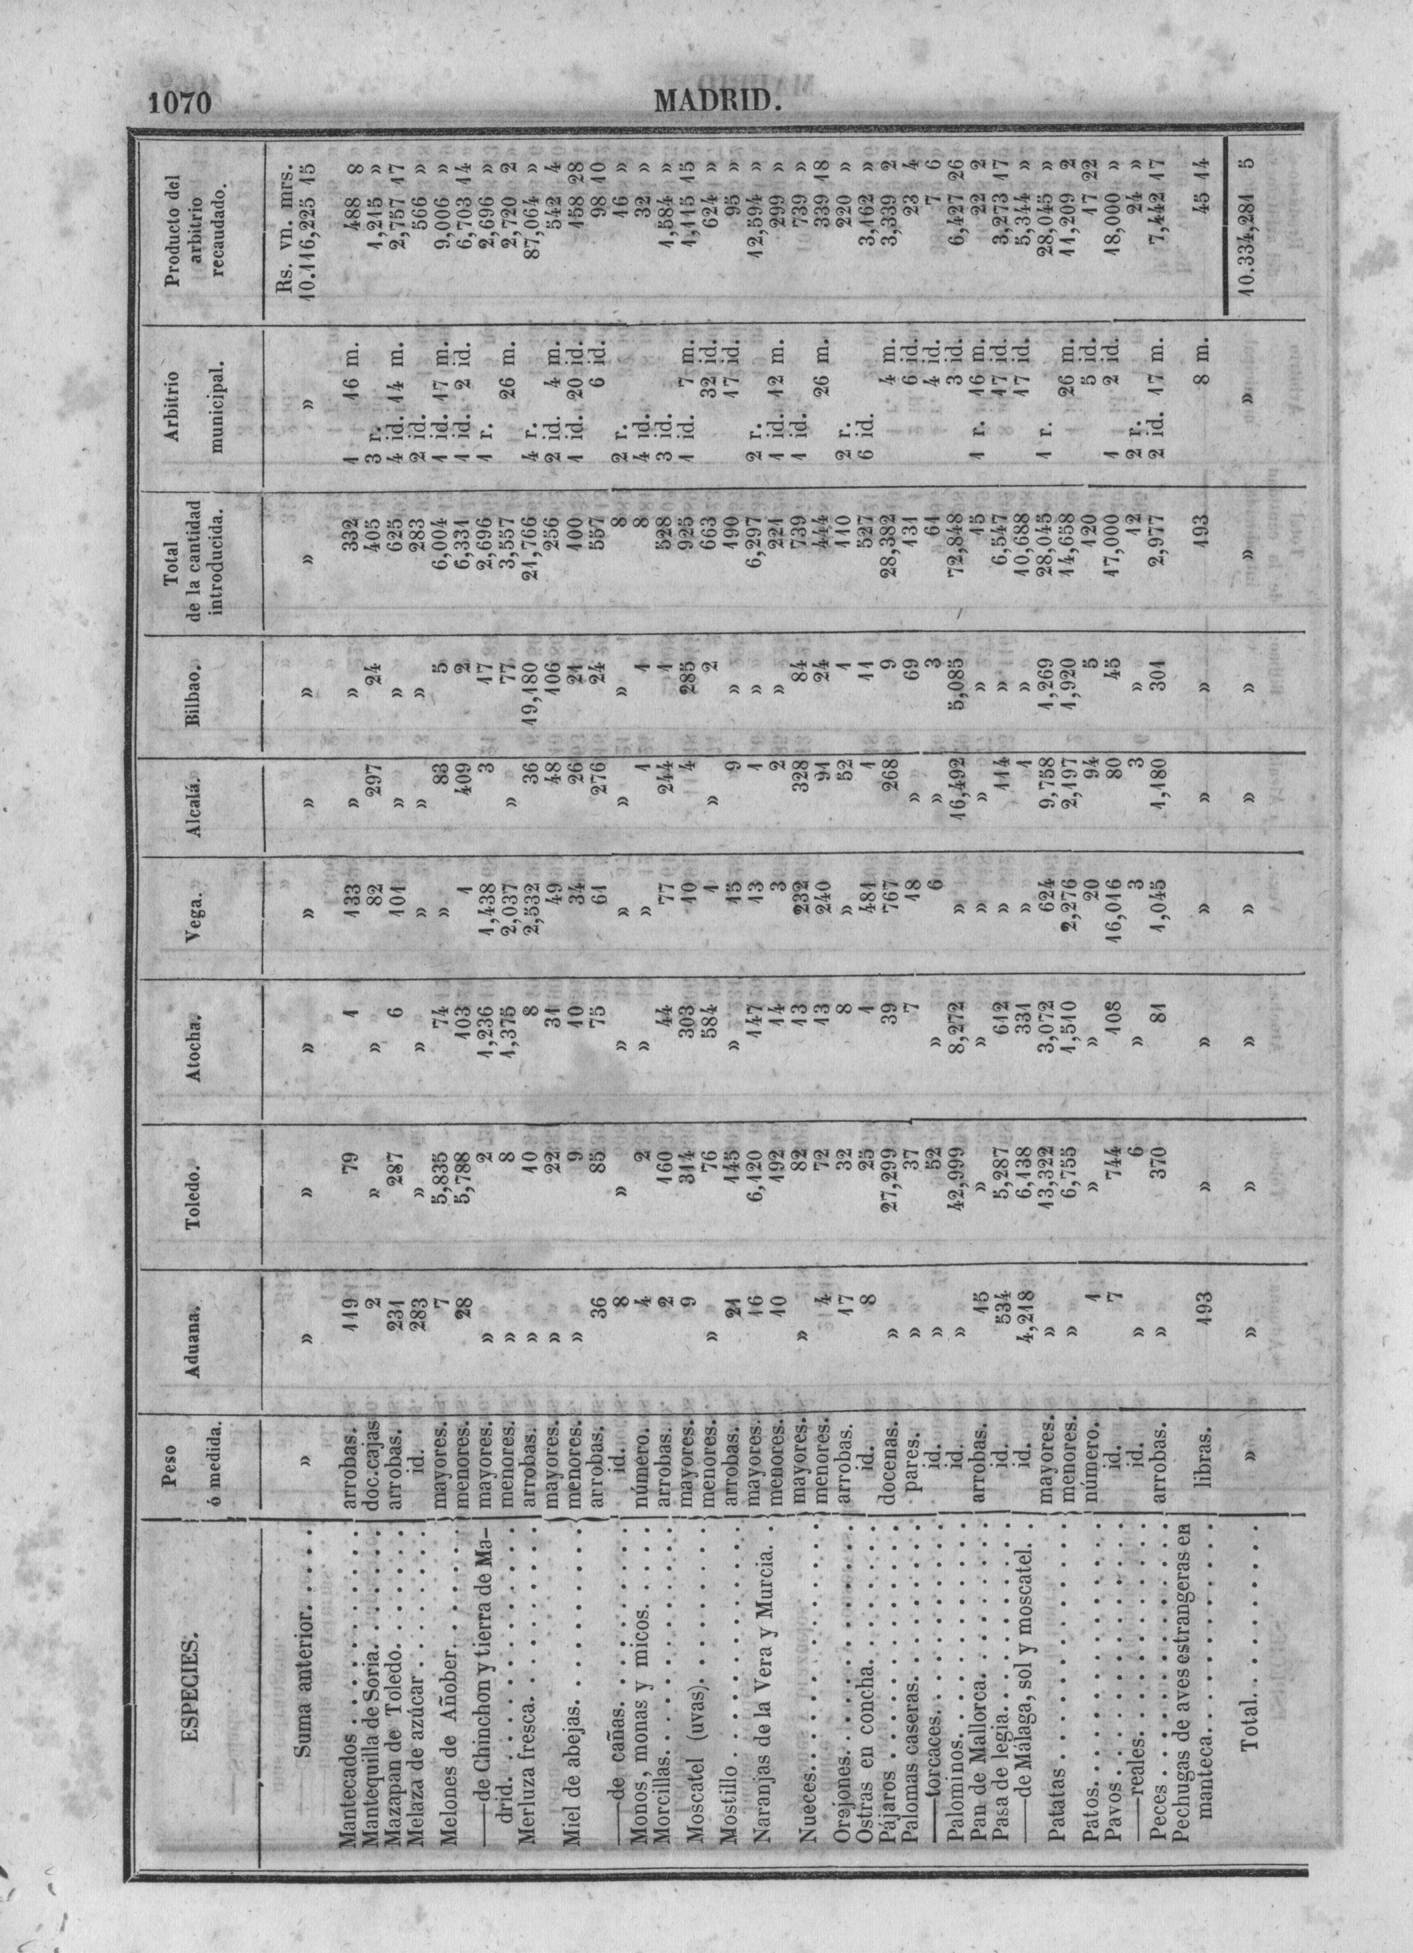 1070
MADRID.
ESPECIES. Peso ó medida. Aduana. Toledo. Atocha. Vega. Alcalá. Bilbao. Total de la cantidad introducida. Arbitrio municipal. Producto del arbitrio recaudado.
Rs. vn. mrs.
Suma anterior. . . . . » » » » » » » » » 10.116,225 15
Mantecados . . . . . . . . arrobas. 119 79 1 133 » » 332 1 16 m. 488 8
Mantequilla de Soria. . . . . . doc.cajas 2 » » 82 297 24 405 3 r. 1,215 »
Mazapan de Toledo. . . . . . arrobas. 231 287 6 101 » » 625 4 id. 14 m. 2,757 17
Melaza de azúcar . . . . . . . id. 283 » » » » » 283 2 id. 566 »
Melones de Añober. . . . . . mayores. 7 5,835 74 » 83 5 6,004 1 id. 17 m. 9,006 »
menores. 28 5,788 103 1 409 2 6,331 1 id. 2 id. 6,703 14
——de Chinchon y tierra de Ma- mayores. » 2 1,236 1,438 3 17 2,696 1 r. 2,696 »
drid. . . . . . . . . . menores. » 8 1,375 2,037 » 77 3,557 26 m. 2,720 2
Merluza fresca. . . . . . . . arrobas. » 10 8 2,532 36 19,180 21,766 4 r. 87,064 »
Miel de abejas. . . . . . . . mayores. » 22 31 49 48 106 256 2 id. 4 m. 542 4
menores. » 9 10 34 26 21 100 1 id. 20 id. 158 28
arrobas. 36 85 75 61 276 24 557 6 id. 98 10
——de cañas. . . . . . . . id. 8 » » » » » 8 2 r. 16 »
Monos, monas y micos. . . . . número. 4 2 » » 1 1 8 4 id. 32 »
Morcillas. . . . . . . . . . arrobas. 2 160 44 77 244 1 528 3 id. 1,584 »
Moscatel (uvas). . . . . . . mayores. 9 314 303 10 4 285 925 1 id. 7 m. 1,115 15
menores. » 76 584 1 » 2 663 32 id. 624 »
Mostillo . . . . . . . . . . arrobas. 21 145 » 15 9 » 190 17 id. 95 »
Naranjas de la Vera y Murcia. . mayores. 16 6,120 147 13 1 » 6,297 2 r. 12,594 »
menores. 10 192 14 3 2 » 221 1 id. 12 m. 299 »
Nueces. . . . . . . . . . . mayores. » 82 13 232 328 84 739 1 id. 739 »
menores. 4 72 13 240 91 24 444 26 m. 339 18
Orejones. . . . . . . . . . arrobas. 17 32 8 » 52 1 110 2 r. 220 »
Ostras en concha. . . . . . . id. 8 25 1 481 1 11 527 6 id. 3,162 »
Pájaros . . . . . . . . . . docenas. » 27,299 39 767 268 9 28,382 4 m. 3,339 2
Palomas caseras. . . . . . . pares. » 37 7 18 » 69 131 6 id. 23 4
——torcaces. . . . . . . . id. » 52 » 6 » 3 61 4 id. 7 6
Palominos. . . . . . . . . . id. » 42,999 8,272 » 16,492 5,085 72,848 3 id. 6,427 26
Pan de Mallorca. . . . . . . arrobas. 15 » » » » » 15 1 r. 16 m. 22 2
Pasa de legia. . . . . . . . id. 534 5,287 612 » 114 » 6,547 17 id. 3,273 17
——de Málaga, sol y moscatel. . id. 4,218 6,138 331 » 1 » 10,688 17 id. 5,344 »
Patatas . . . . . . . . . . mayores. » 13,322 3,072 624 9,758 1,269 28,045 1 r. 28,045 »
menores. » 6,755 1,510 2,276 2,197 1,920 14,658 26 m. 11,209 2
Patos. . . . . . . . . . . número. 1 » » 20 94 5 120 5 id. 17 22
Pavos . . . . . . . . . . . id. 7 744 108 16,016 80 45 17,000 1 2 id. 18,000 »
——reales. . . . . . . . . id. » 6 » 3 3 » 12 2 r. 24 »
Peces . . . . . . . . . . . arrobas. » 370 81 1,045 1,180 301 2,977 2 id. 17 m. 7,442 17
Pechugas de aves estrangeras en
manteca. . . . . . . . . libras. 193 » » » » » 193 8 m. 45 14
Total. . . . . . . . » » » » » » » » » 10.334,281 5